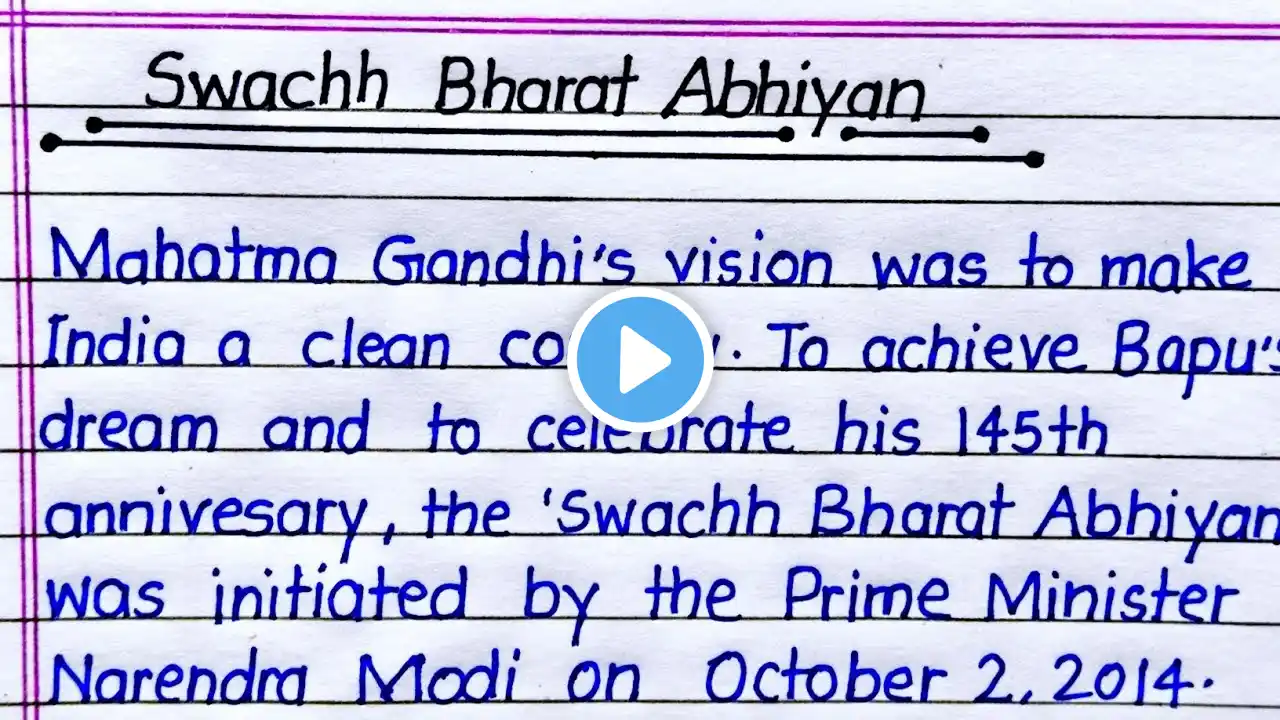 Swachh Bharat Abhiyan
Mahatma Gandhi's vision was to make
India a clean . To achieve Bapu's
dream and to celebrate his 145th
annivesary, the 'Swachh Bharat Abhiyan
was initiated by the Prime Minister
Narendra Modi on October 2, 2014.